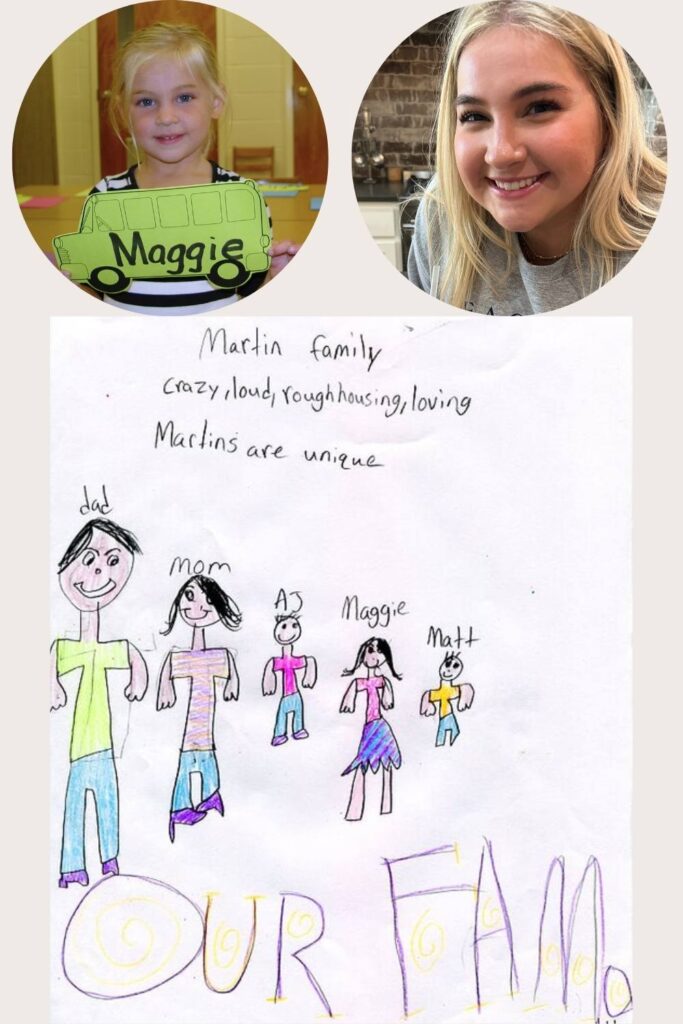 Maggie
Martin family
crazy, loud, roughhousing, loving
Martins are unique
dad
mom
AJ
Maggie
Matt
OUR FAM